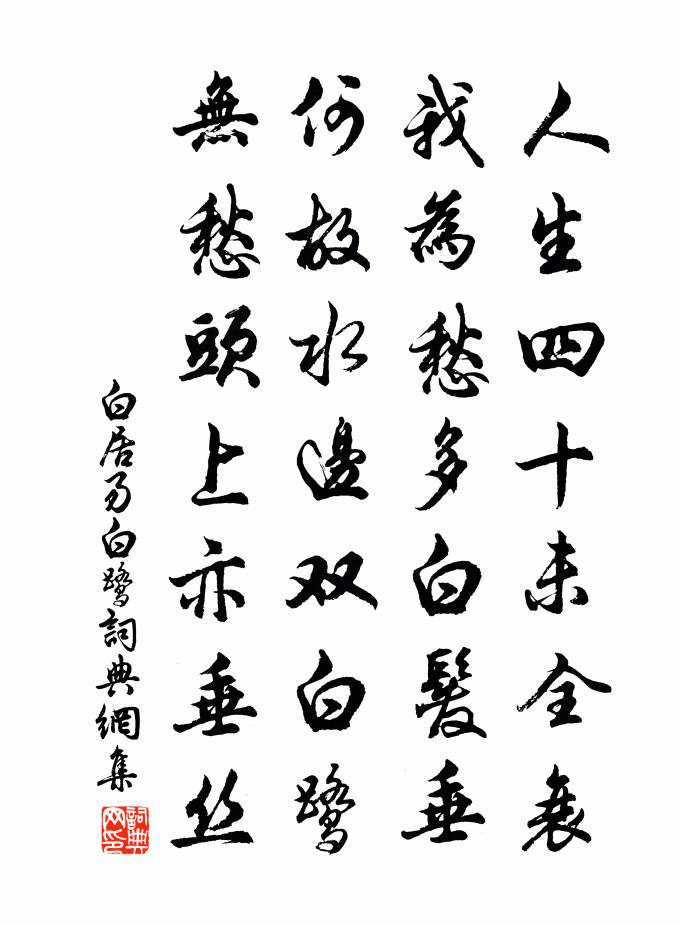 人生四十未全衰
我為愁多白髮垂
何故水邊双白鷺
無愁頭上亦垂丝
白居易白鷺詞典網集
詞典网印